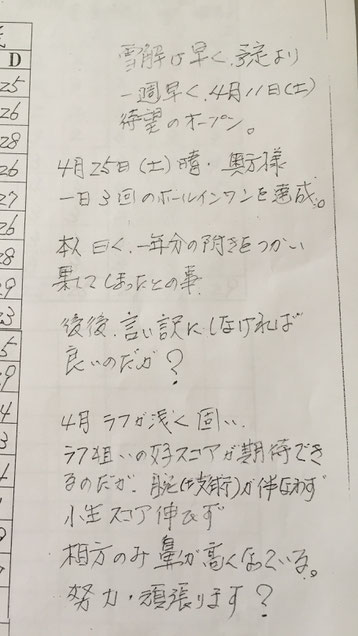 D
25
26
28
26
27
26
28
29
23
5
29
4
3
雪解け早く、予定より
一週早く、4月11日(土)
待望のオープン。
4月25日(土)晴・奥方様
一日3回のホールインワンを達成。
本人曰く、一年分の付きをつかい
果してしまったとの事
後後、言い訳にしなければ
良いのだが?
4月 ラフが浅く固い、
ラフ狙いの好スコアが期待でき
るのだが、腕(技術)が伴なわず
小生スコア伸びず
相方のみ鼻が高くなっている。
努力・頑張ります?